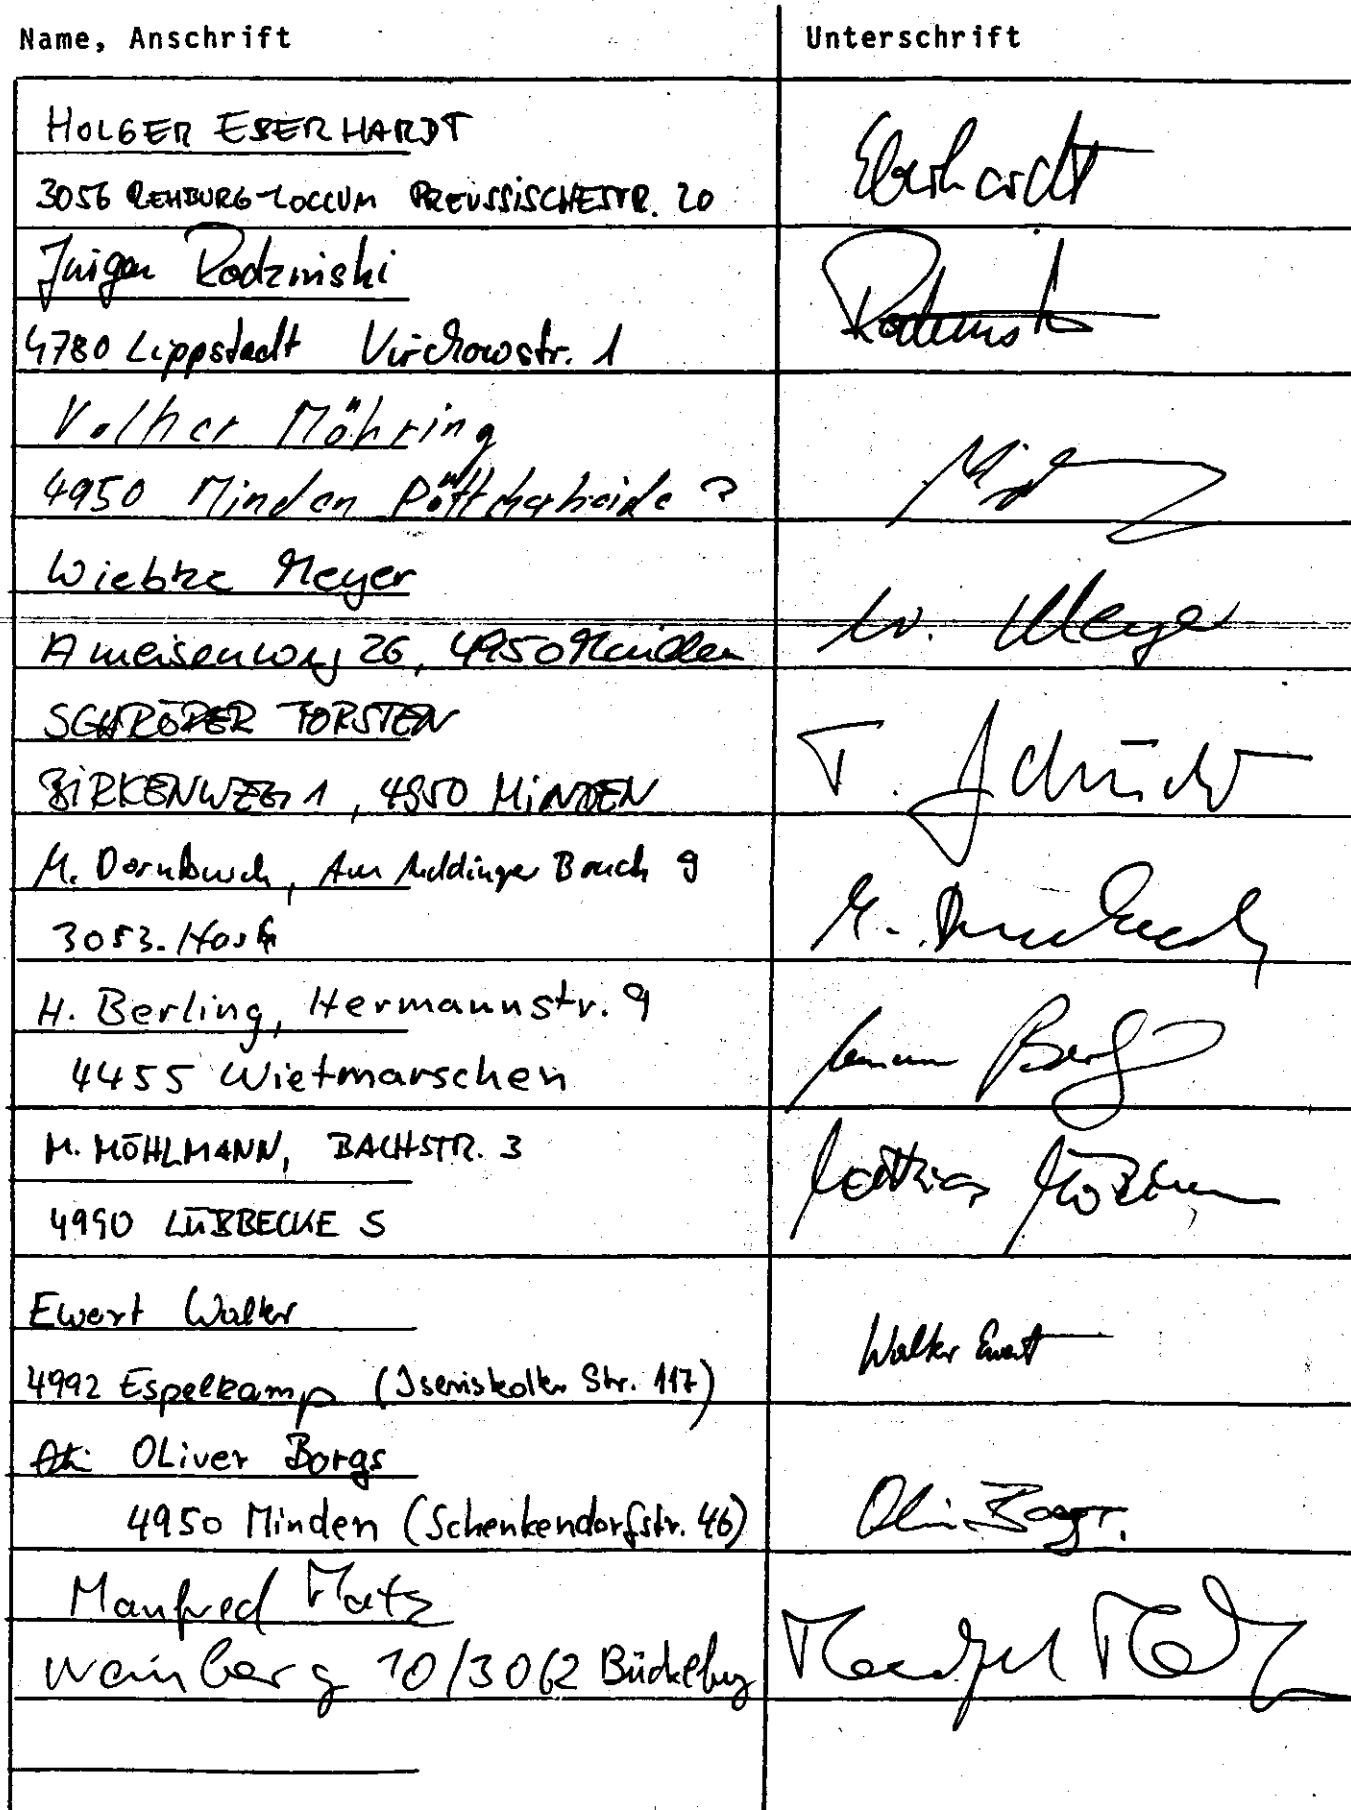 Name, Anschrift Unterschrift
HOLGER EBERHARDT
3056 REHBURG-LOCCUM PREUSSISCHESTR. 20 Eberhardt
Jürgen Rodzinski
4780 Lippstadt Virchowstr. 1
Volker Möhring
4950 Minden Pöttcherheide ?
Wiebke Meyer
Ameisenweg 26, 4950 Minden W. Meyer
SCHRÖDER TORSTEN
BIRKENWEG 1, 4950 MINDEN T. Schröder
M. Dornbusch, Am Bruch 9
3053 M. Dornbusch
H. Berling, Hermannstr. 9
4455 Wietmarschen
M. MÖHLMANN, BACHSTR. 3
4990 LÜBBECKE 5 Matthias Möhlmann
Ewert Walter
4992 Espelkamp (Isenstedter Str. 117) Walter Ewert
Oliver Borgs
4950 Minden (Schenkendorfstr. 46) Oliver Borgs
Manfred Matz
Weinberg 10/3062 Bückeburg Manfred Matz